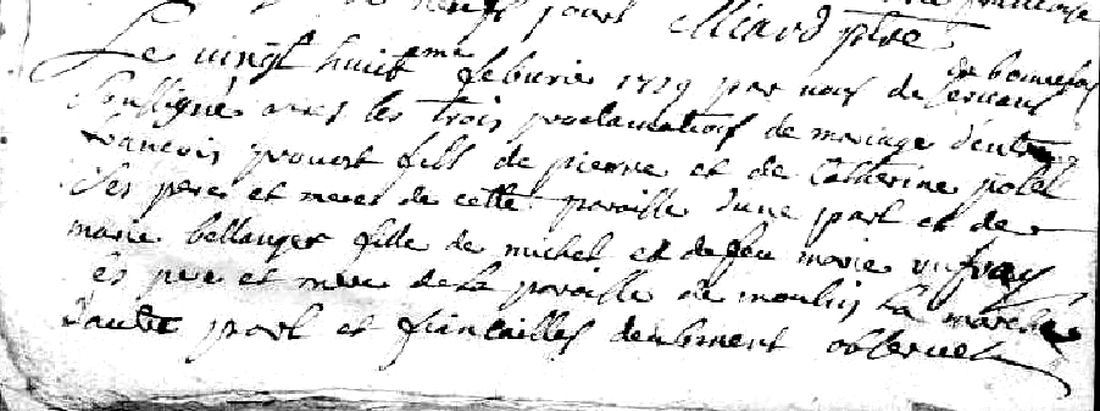 de neuf jours Miard ptre
de bonnefoy
Le vingt huit eme febvrie 1719 par nous de servant
soussigné apres les trois proclamations de mariage d'entre
francois provost fils de pierre et de Catherine potel
ses pere et meres de cette paroisse d'une part et de
marie bellanger fille de michel et de feu marie
es pere et mere de la paroisse de moulin la marche
d'autre part et fiancailles deubment observees